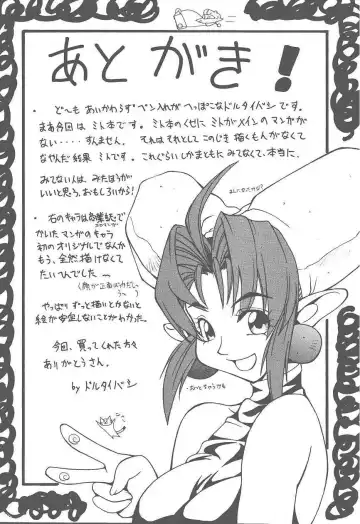 あとがき!
・ど〜も あいかわらず ペン入れが へっぽこな ドルタイバシ です。
まあ今回は ミん本です。ミん本のくせに ミんがメインの マンガが
ない・・・・すんません。 それは それとして このじき 描くもんがなくて
なやんだ結果 ミんです。これぐらいしか まともに みてなくて、本当に。
みてない人は、みたほうが
いいと思う、おもしろいから!
・右のキャラは
かいた マンガのキャラ
初の オリジナルで なんか
もう、全然 描けなくて
たいへんでした
やっぱり ずっと描いとかないと
絵が安定しないことがわかった。
今回、買ってくれた方々
ありがとうさん。
by ドルタイバシ